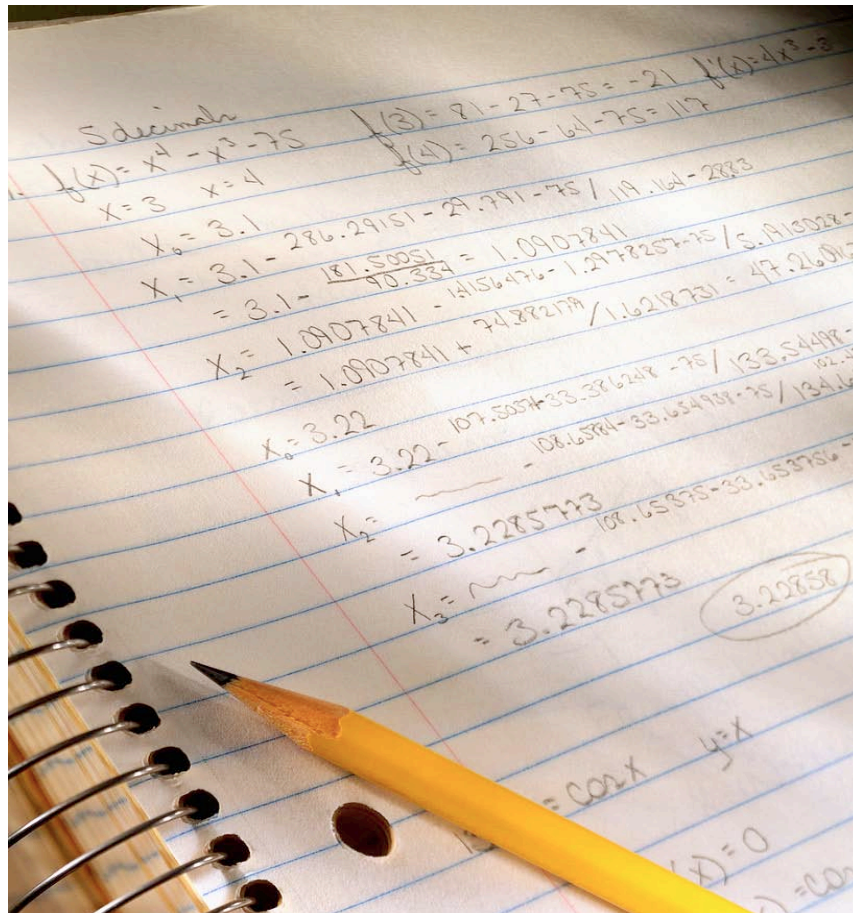 5 decimals
1. f(x) = x⁴ - x³ - 75 f(3) = 81 - 27 - 75 = -21 f'(x) = 4x³ - 3
x = 3 x = 4 f(4) = 256 - 64 - 75 = 117
x₀ = 3.1
x₁ = 3.1 - 286.29151 - 29.791 - 75 / 119.164 - 28.83
= 3.1 - 181.50051/90.334 = 1.0907841
x₂ = 1.0907841 - 1.4156476 - 1.2978257 - 75 / 5.1913028 -
= 1.0907841 + 74.882179 / 1.6218731 = 47.2609
x₀ = 3.22
x₁ = 3.22 - 107.50374 - 33.386248 - 75 / 133.54498 -
x₂ = - 108.6584 - 33.654938 - 75 / 134.6
= 3.2285773
x₃ = - 108.65375 - 33.653756 -
= 3.2285773 3.22858
= cos x y = x
(x) = 0
) = cos